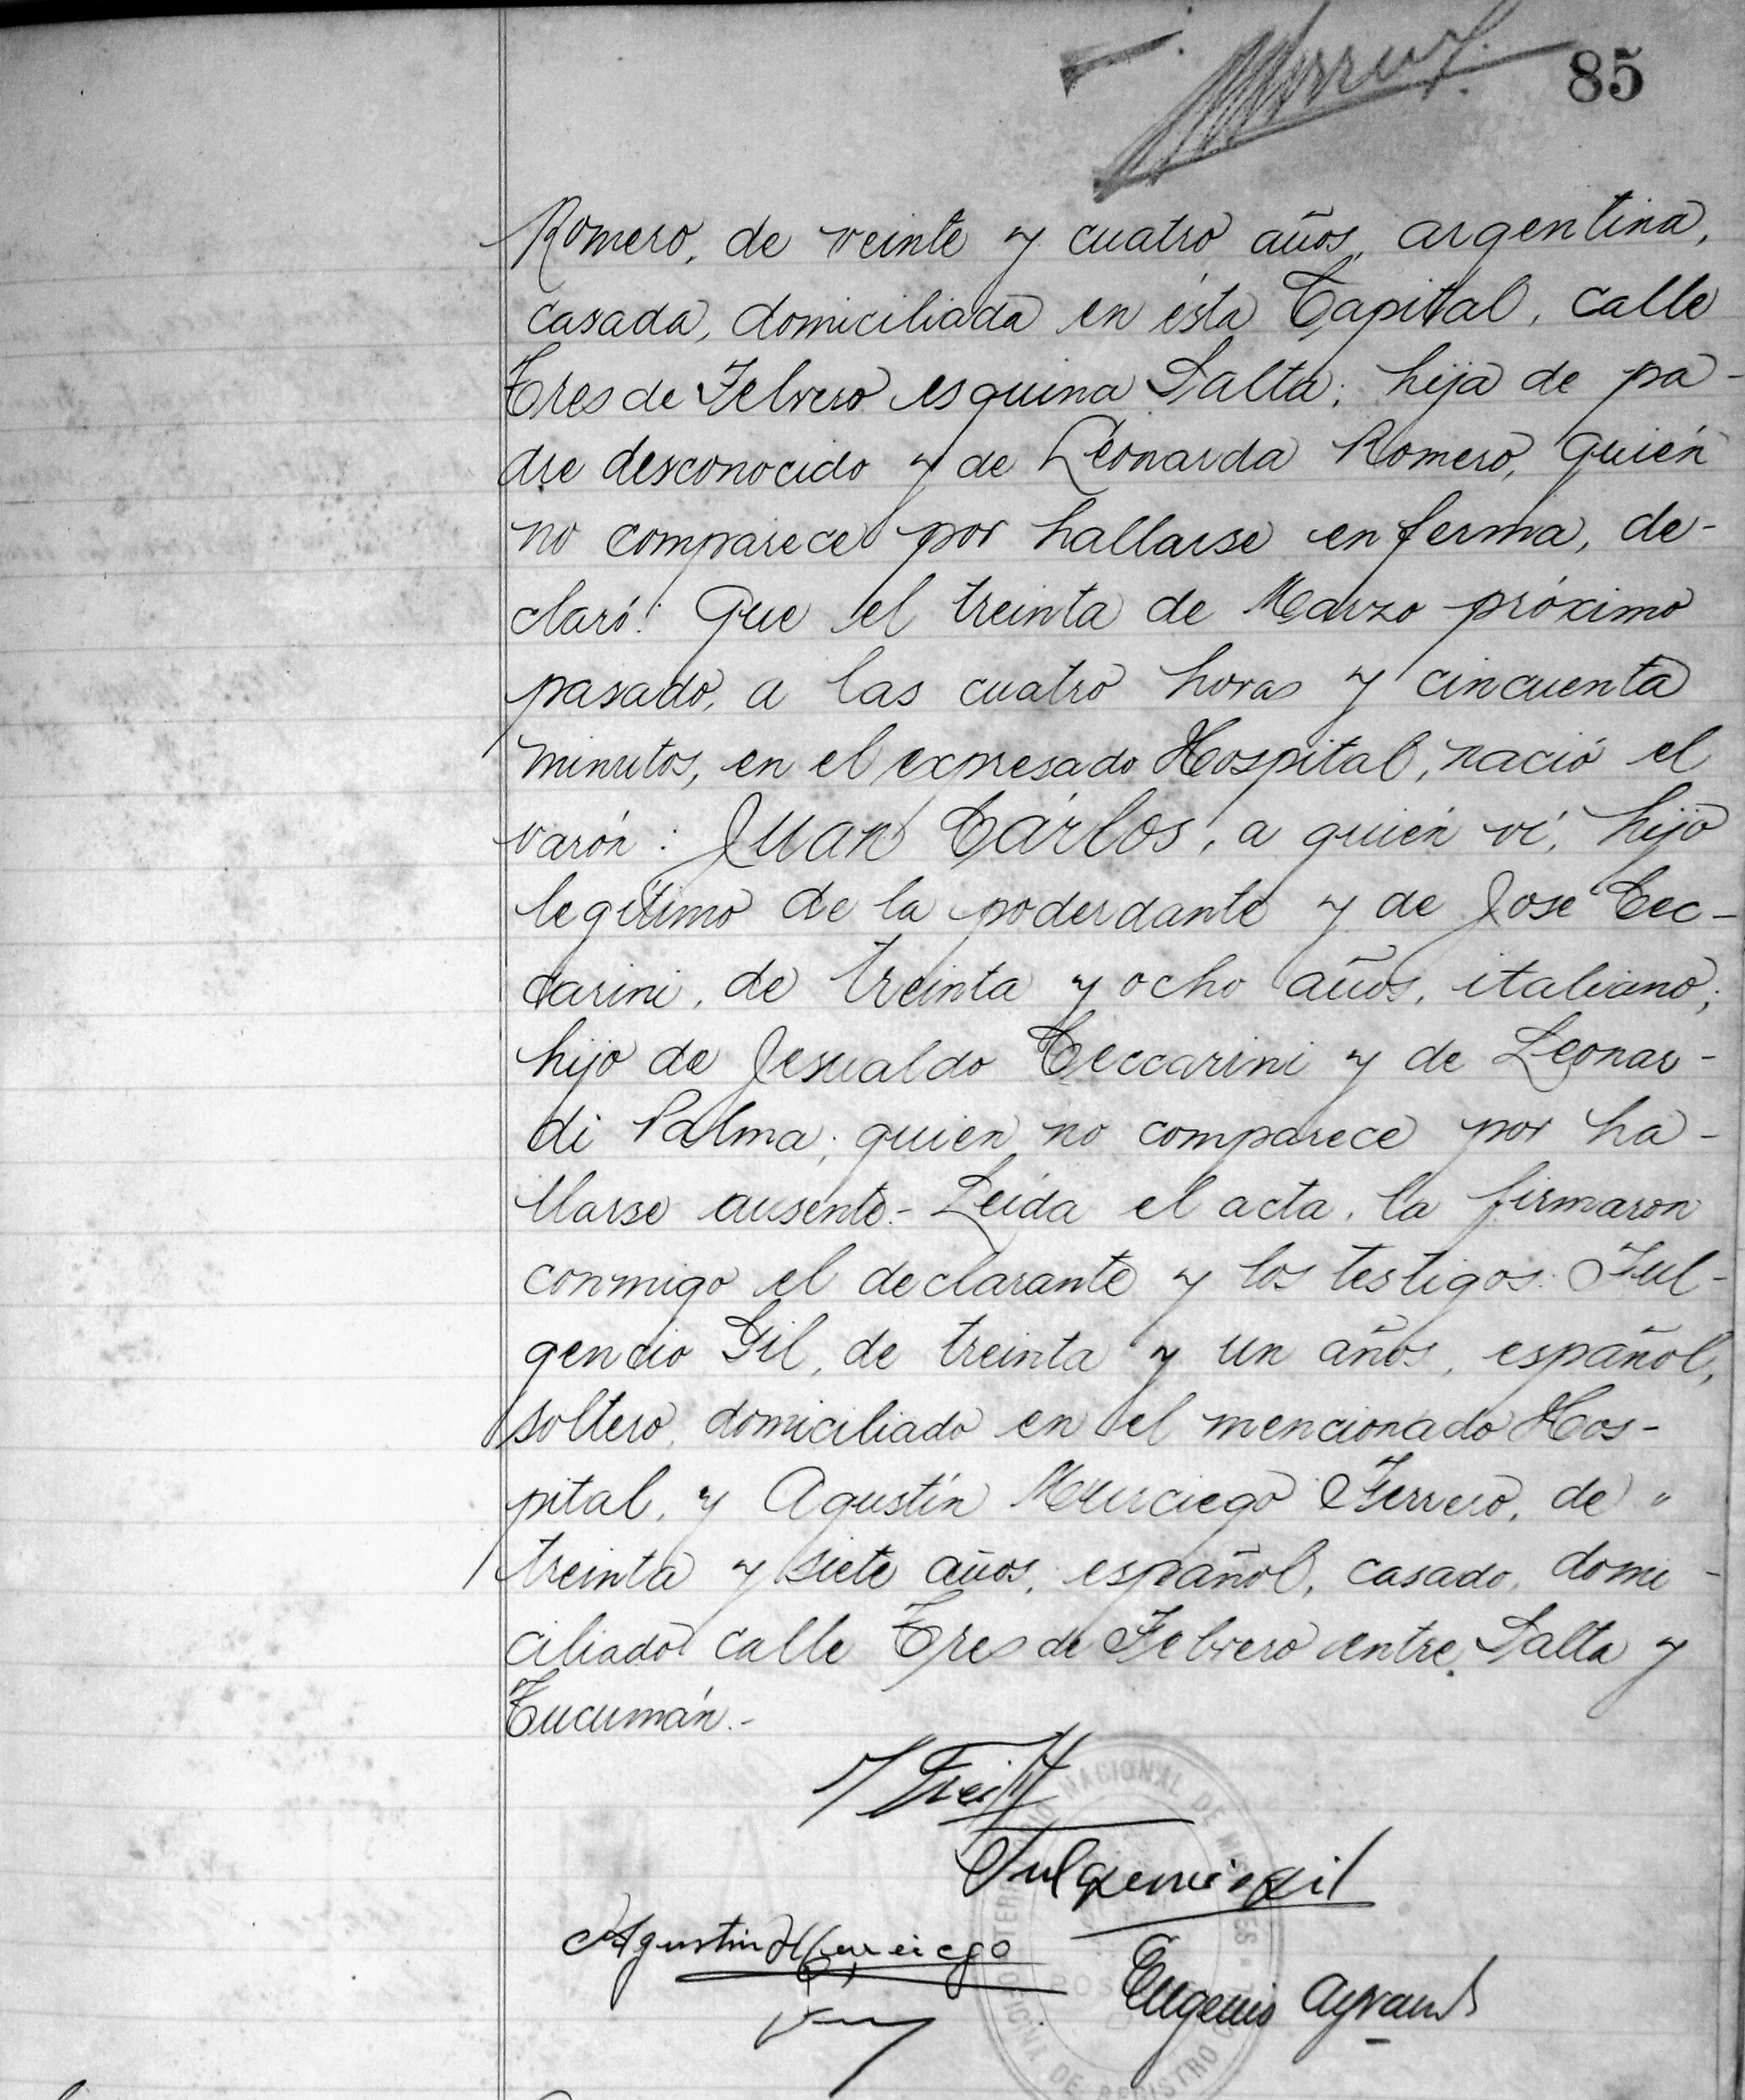 85
Romero, de veinte y cuatro años, argentina,
casada, domiciliada en ésta Capital, calle
Tres de Febrero esquina Salta; hija de pa-
dre desconocido y de Leonarda Romero, quién
no comparece por hallarse enferma, de-
claró: Que el treinta de Marzo próximo
pasado, a las cuatro horas y cincuenta
minutos, en el expresado Hospital, nació el
varón: Juan Cárlos, a quién ví, hijo
legítimo de la poderdante y de José Cec-
carini, de treinta y ocho años, italiano;
hijo de Jesualdo Ceccarini y de Leonar-
di Palma; quien no comparece por ha-
llarse ausente.- Leída el acta, la firmaron
conmigo el declarante y los testigos: Ful-
gencio Gil, de treinta y un años, español,
soltero, domiciliado en el mencionado Hos-
pital, y Agustín Murciego Ferrero, de "
treinta y siete años, español, casado, domi-
ciliado calle Tres de Febrero entre Salta y
Tucumán.-
Fulgencio Gil
Agustin Murciego
Eugenio
NACIONAL DE
DE REGISTRO